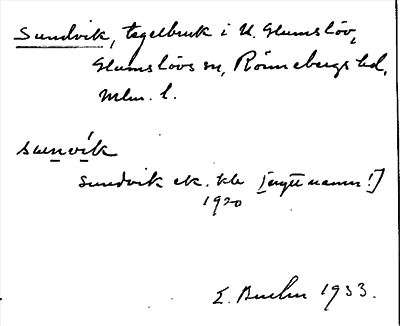 Sundvik, tegelbruk i V. Glumslöv,
Glumslövs sn, Rönnebergs hd,
Mlm. l.
sunvik
Sundvik ek. kbl [nytt namn!]
1920
1933.